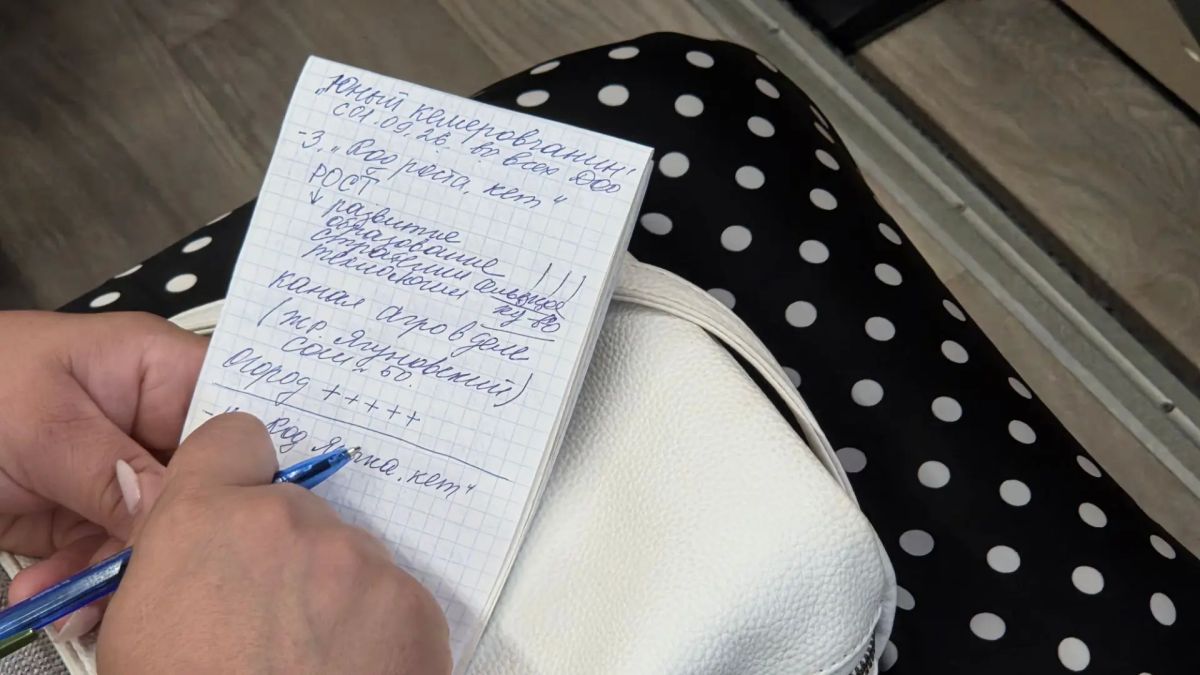 "Юный кемеровчанин"
с 01.09.26. во всех ДОО
- 3. "Код роста. кет"
РОСТ
↓ развитие
образование
строении
технологии
канал агро в деле
(жр Ягуновский)
СОШ № 50.
огород + + + + +
код кет"